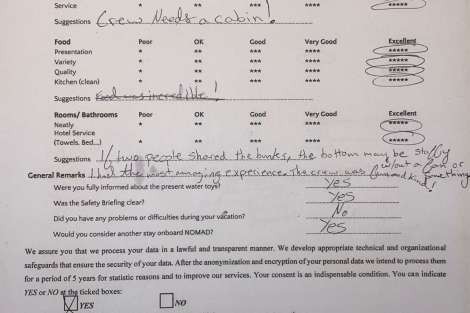 Service * ** *** **** *****
Suggestions Crew Needs a cabin!
Food Poor OK Good Very Good Excellent
Presentation * ** *** **** *****
Variety * ** *** **** *****
Quality * ** *** **** *****
Kitchen (clean) * ** *** **** *****
Suggestions Food was incredible!
Rooms/ Bathrooms Poor OK Good Very Good Excellent
Neatly * ** *** **** *****
Hotel Service
(Towels, Bed...) * ** *** **** *****
Suggestions If two people shared the bunks, the bottom may be stuffy
w/out a fan or
General Remarks I had the most amazing experience. The crew was fun and kind! something
Were you fully informed about the present water toys? Yes
Was the Safety Briefing clear? Yes
Did you have any problems or difficulties during your vacation? No
Would you consider another stay onboard NOMAD? Yes
We assure you that we process your data in a lawful and transparent manner. We develop appropriate technical and organizational
safeguards that ensure the security of your data. After the anonymization and encryption of your personal data we intend to process them
for a period of 5 years for statistic reasons and to improve our services. Your consent is an indispensable condition. You can indicate
YES or NO at the ticked boxes:
YES NO